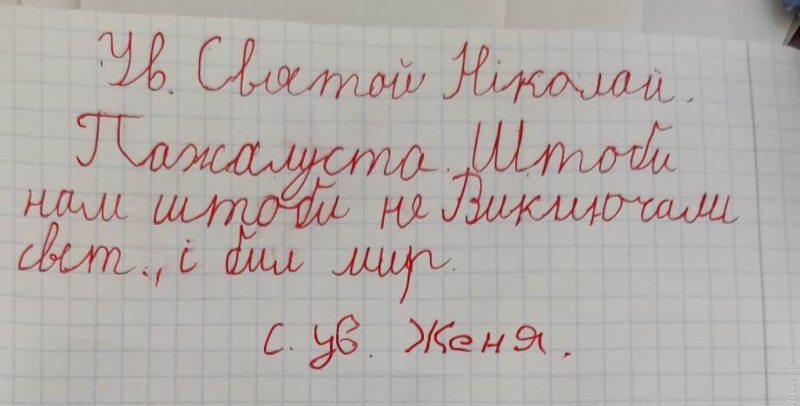 Ув. Святой Ніколай.
Пажалуста. Штоби
нам штоби не Виключалі
свет., і бил мир.
с. ув. Женя.